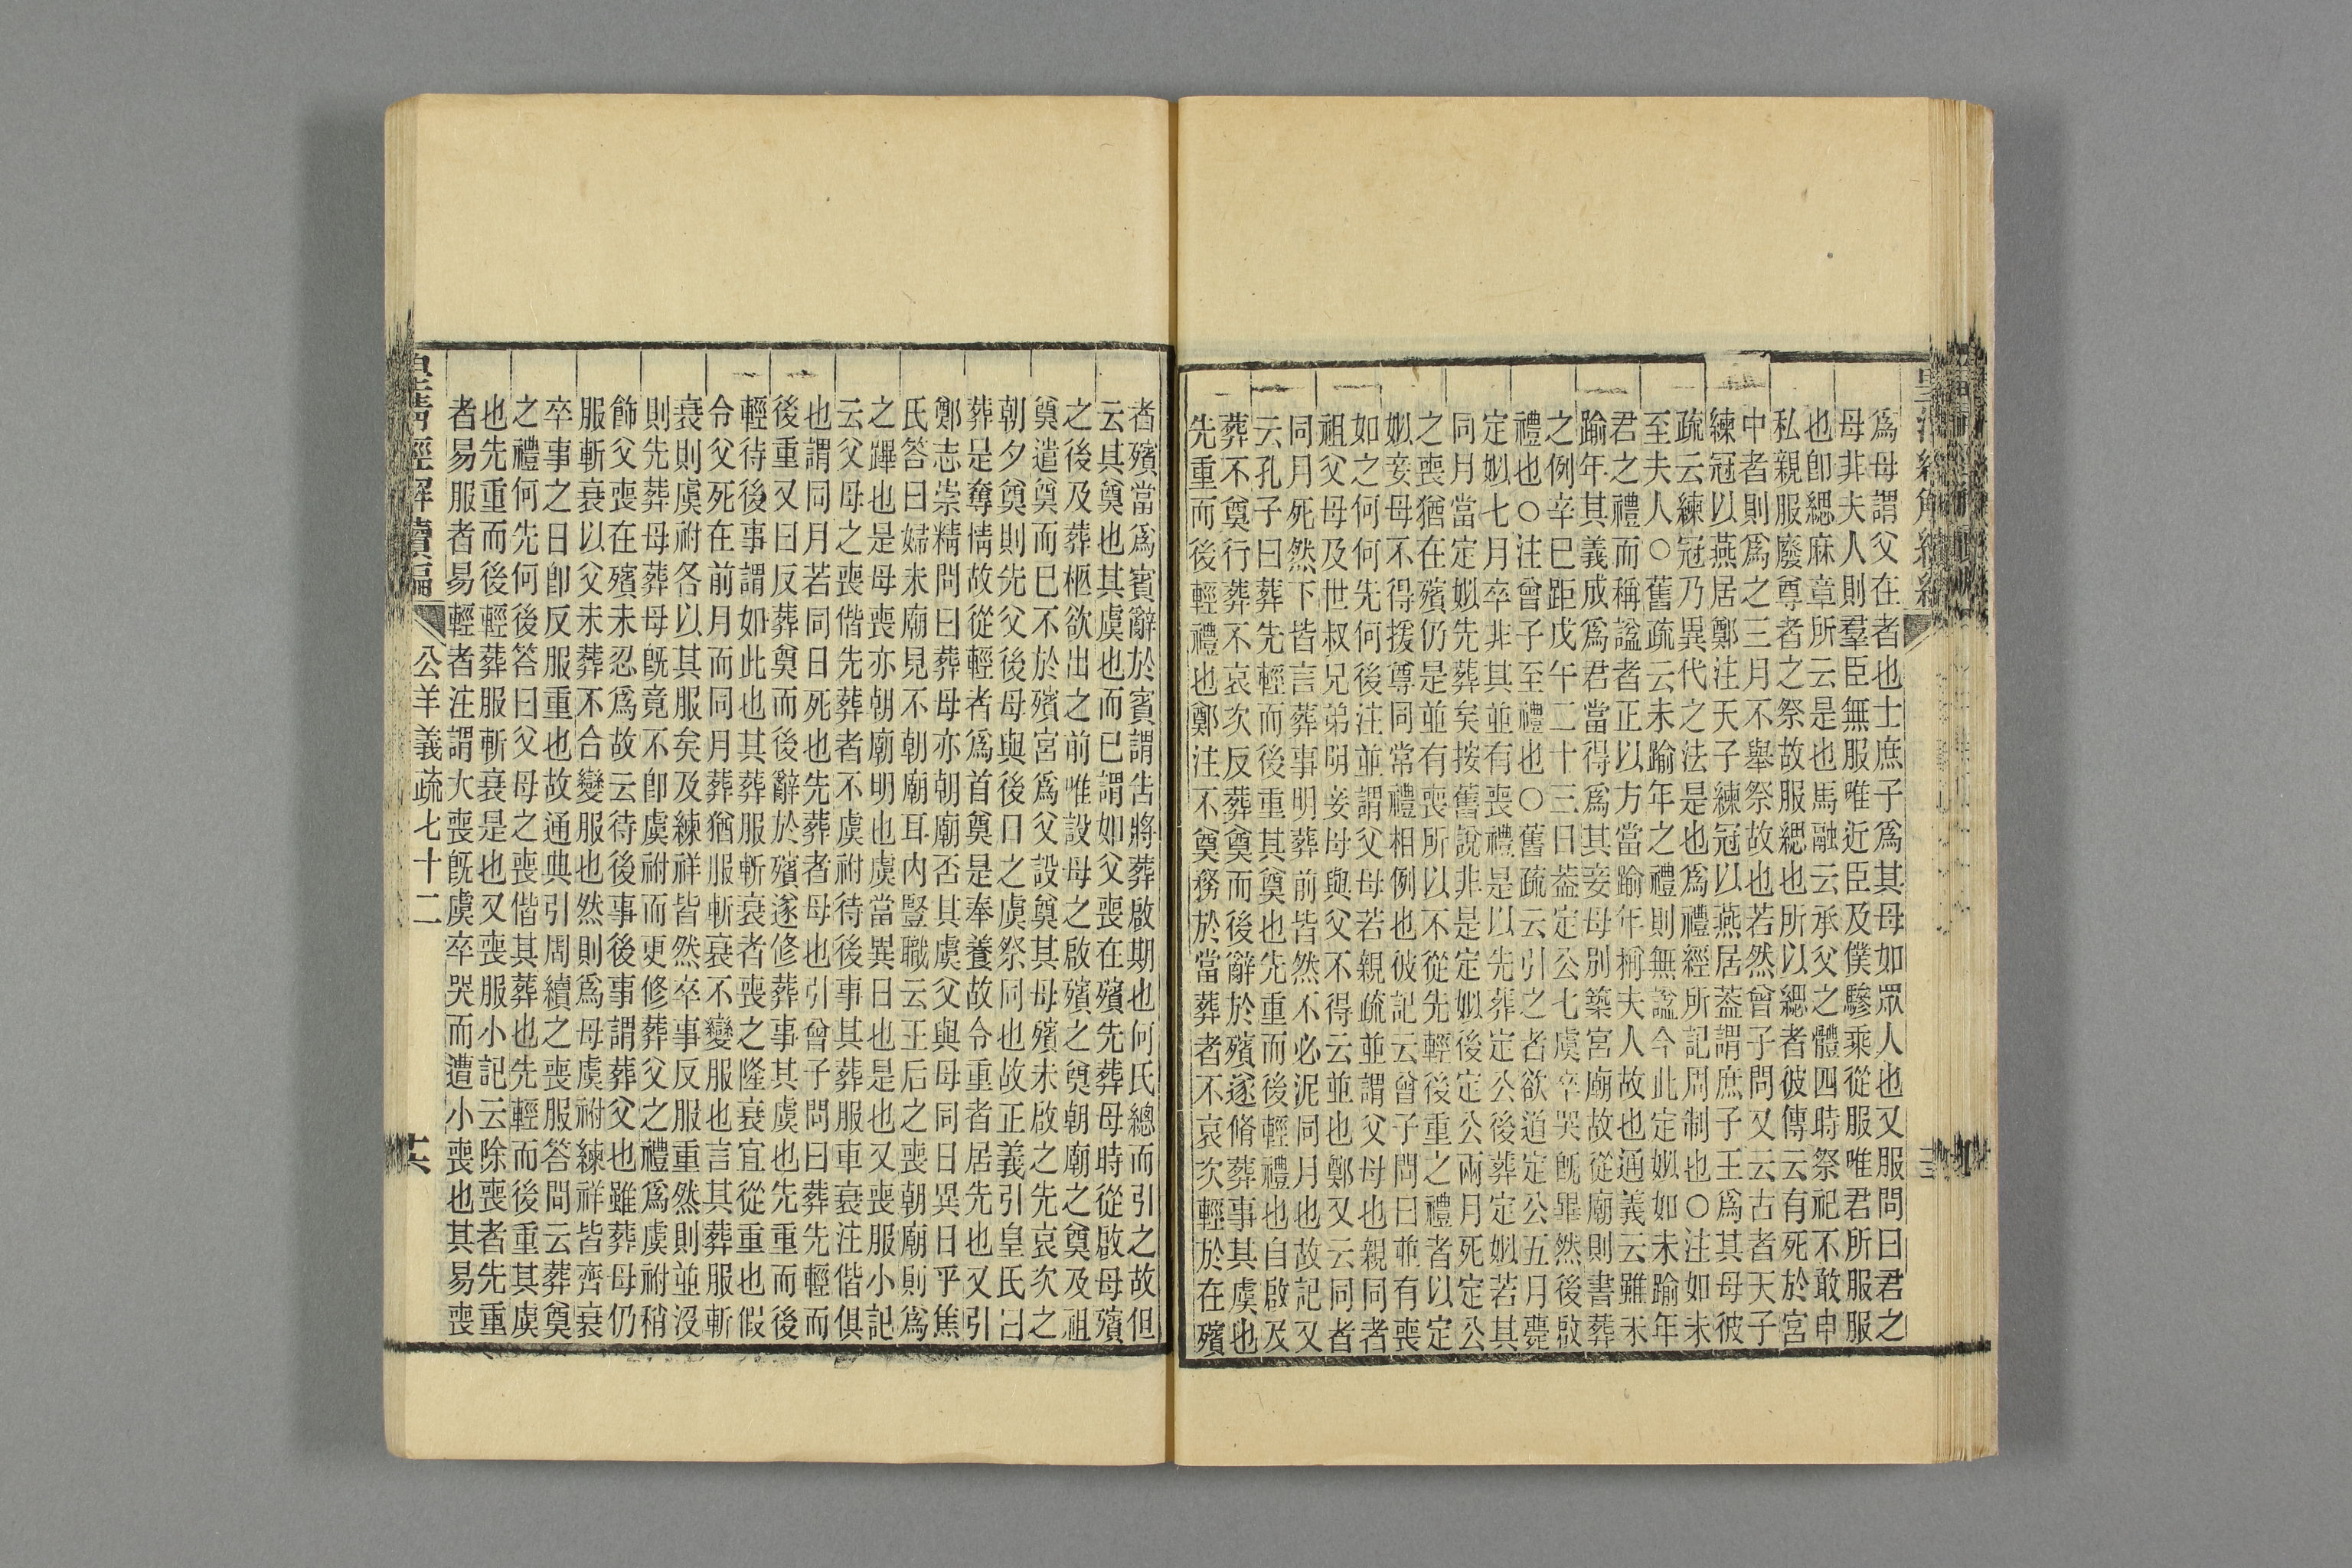 爲母謂父在者也士庶子爲其母如眾人也又服問曰君之
母非夫人則羣臣無服唯近臣及僕驂乘從服唯君所服服
也卽緦麻章所云是也馬融云承父之體四時祭祀不敢申
私親服廢尊者之祭故服緦也所以緦者彼傳云有死於宮
中者則爲之三月不舉祭故也若然曾子問又云古者天子
練冠以燕居鄭注天子練冠以燕居葢謂庶子王爲其母彼
疏云練冠乃異代之法是也爲禮經所記周制也○注如未
至夫人○舊疏云未踰年之禮則無諡今此定姒如未踰年
君之禮而稱諡者正以方當踰年稱夫人故也通義云雖未
踰年其義成爲君當得爲其妾母別築宮廟故從廟則書葬
之例辛巳距戊午二十三日葢定公七虞卒哭旣畢然後啟
禮也○注曾子至禮也○舊疏云引之者欲道定公五月薨
定姒七月卒非其並有喪禮是以先葬定公後葬定姒若其
同月當定姒先葬矣按舊說非是定姒後定公兩月死定公
之喪猶在殯仍是並有喪所以不從先輕後重之禮者以定
姒妾母不得援尊同常禮相例也彼記云曾子問曰並有喪
如之何何先何後注並謂父母若親疏並謂父母也親同者
祖父母及世叔兄弟明妾母與父不得云並也鄭又云同者
同月死然下皆言葬事明葬前皆然不必泥同月也故記又
云孔子曰葬先輕而後重其奠也先重而後輕禮也自啟及
葬不奠行葬不哀次反葬奠而後辭於殯遂脩葬事其虞也
先重而後輕禮也鄭注不奠務於當葬者不哀次輕於在殯
者殯當爲賓辭於賓謂告將葬啟期也何氏總而引之故但
云其奠也其虞也而已謂如父喪在殯先葬母時從啟母殯
之後及葬柩欲出之前唯設母之啟殯之奠朝廟之奠及祖
奠遣奠而已不於殯宮爲父設奠其母殯未啟之先哀次之
朝夕奠則先父後母與後日之虞祭同也故正義引皇氏曰
葬是奪情故從輕者爲首奠是奉養故令重者居先也又引
鄭志崇精問曰葬母亦朝廟否其虞父與母同日異日乎焦
氏答曰婦未廟見不朝廟耳內豎職云王后之喪朝廟則爲
之蹕也是母喪亦朝廟明也虞當異日也是也又喪服小記
云父母之喪偕先葬者不虞祔待後事其葬服車衰注偕俱
也謂同月若同日死也先葬者母也引曾子問曰葬先輕而
後重又曰反葬奠而後辭於殯遂修葬事其虞也先重而後
輕待後事謂如此也其葬服斬衰者喪之隆衰宜從重也假
令父死在前月而同月葬猶服斬衰不變服也言其葬服斬
衰則虞祔各以其服矣及練祥皆然卒事反服重然則並沒
則先葬母葬母旣竟不卽虞祔而更修葬父之禮爲虞祔稍
飾父喪在殯未忍爲故云待後事後事謂葬父也雖葬母仍
服斬衰以父未葬不合變服也然則爲母虞祔練祥皆齊衰
卒事之日卽反服重也故通典引周續之喪服答問云葬奠
之禮何先何後答曰父母之喪偕其葬也先輕而後重其虞
也先重而後輕葬服斬衰是也又喪服小記云除喪者先重
者易服者易輕者注謂大喪旣虞卒哭而遭小喪也其易喪
皇清經解續編 公羊義疏七十二